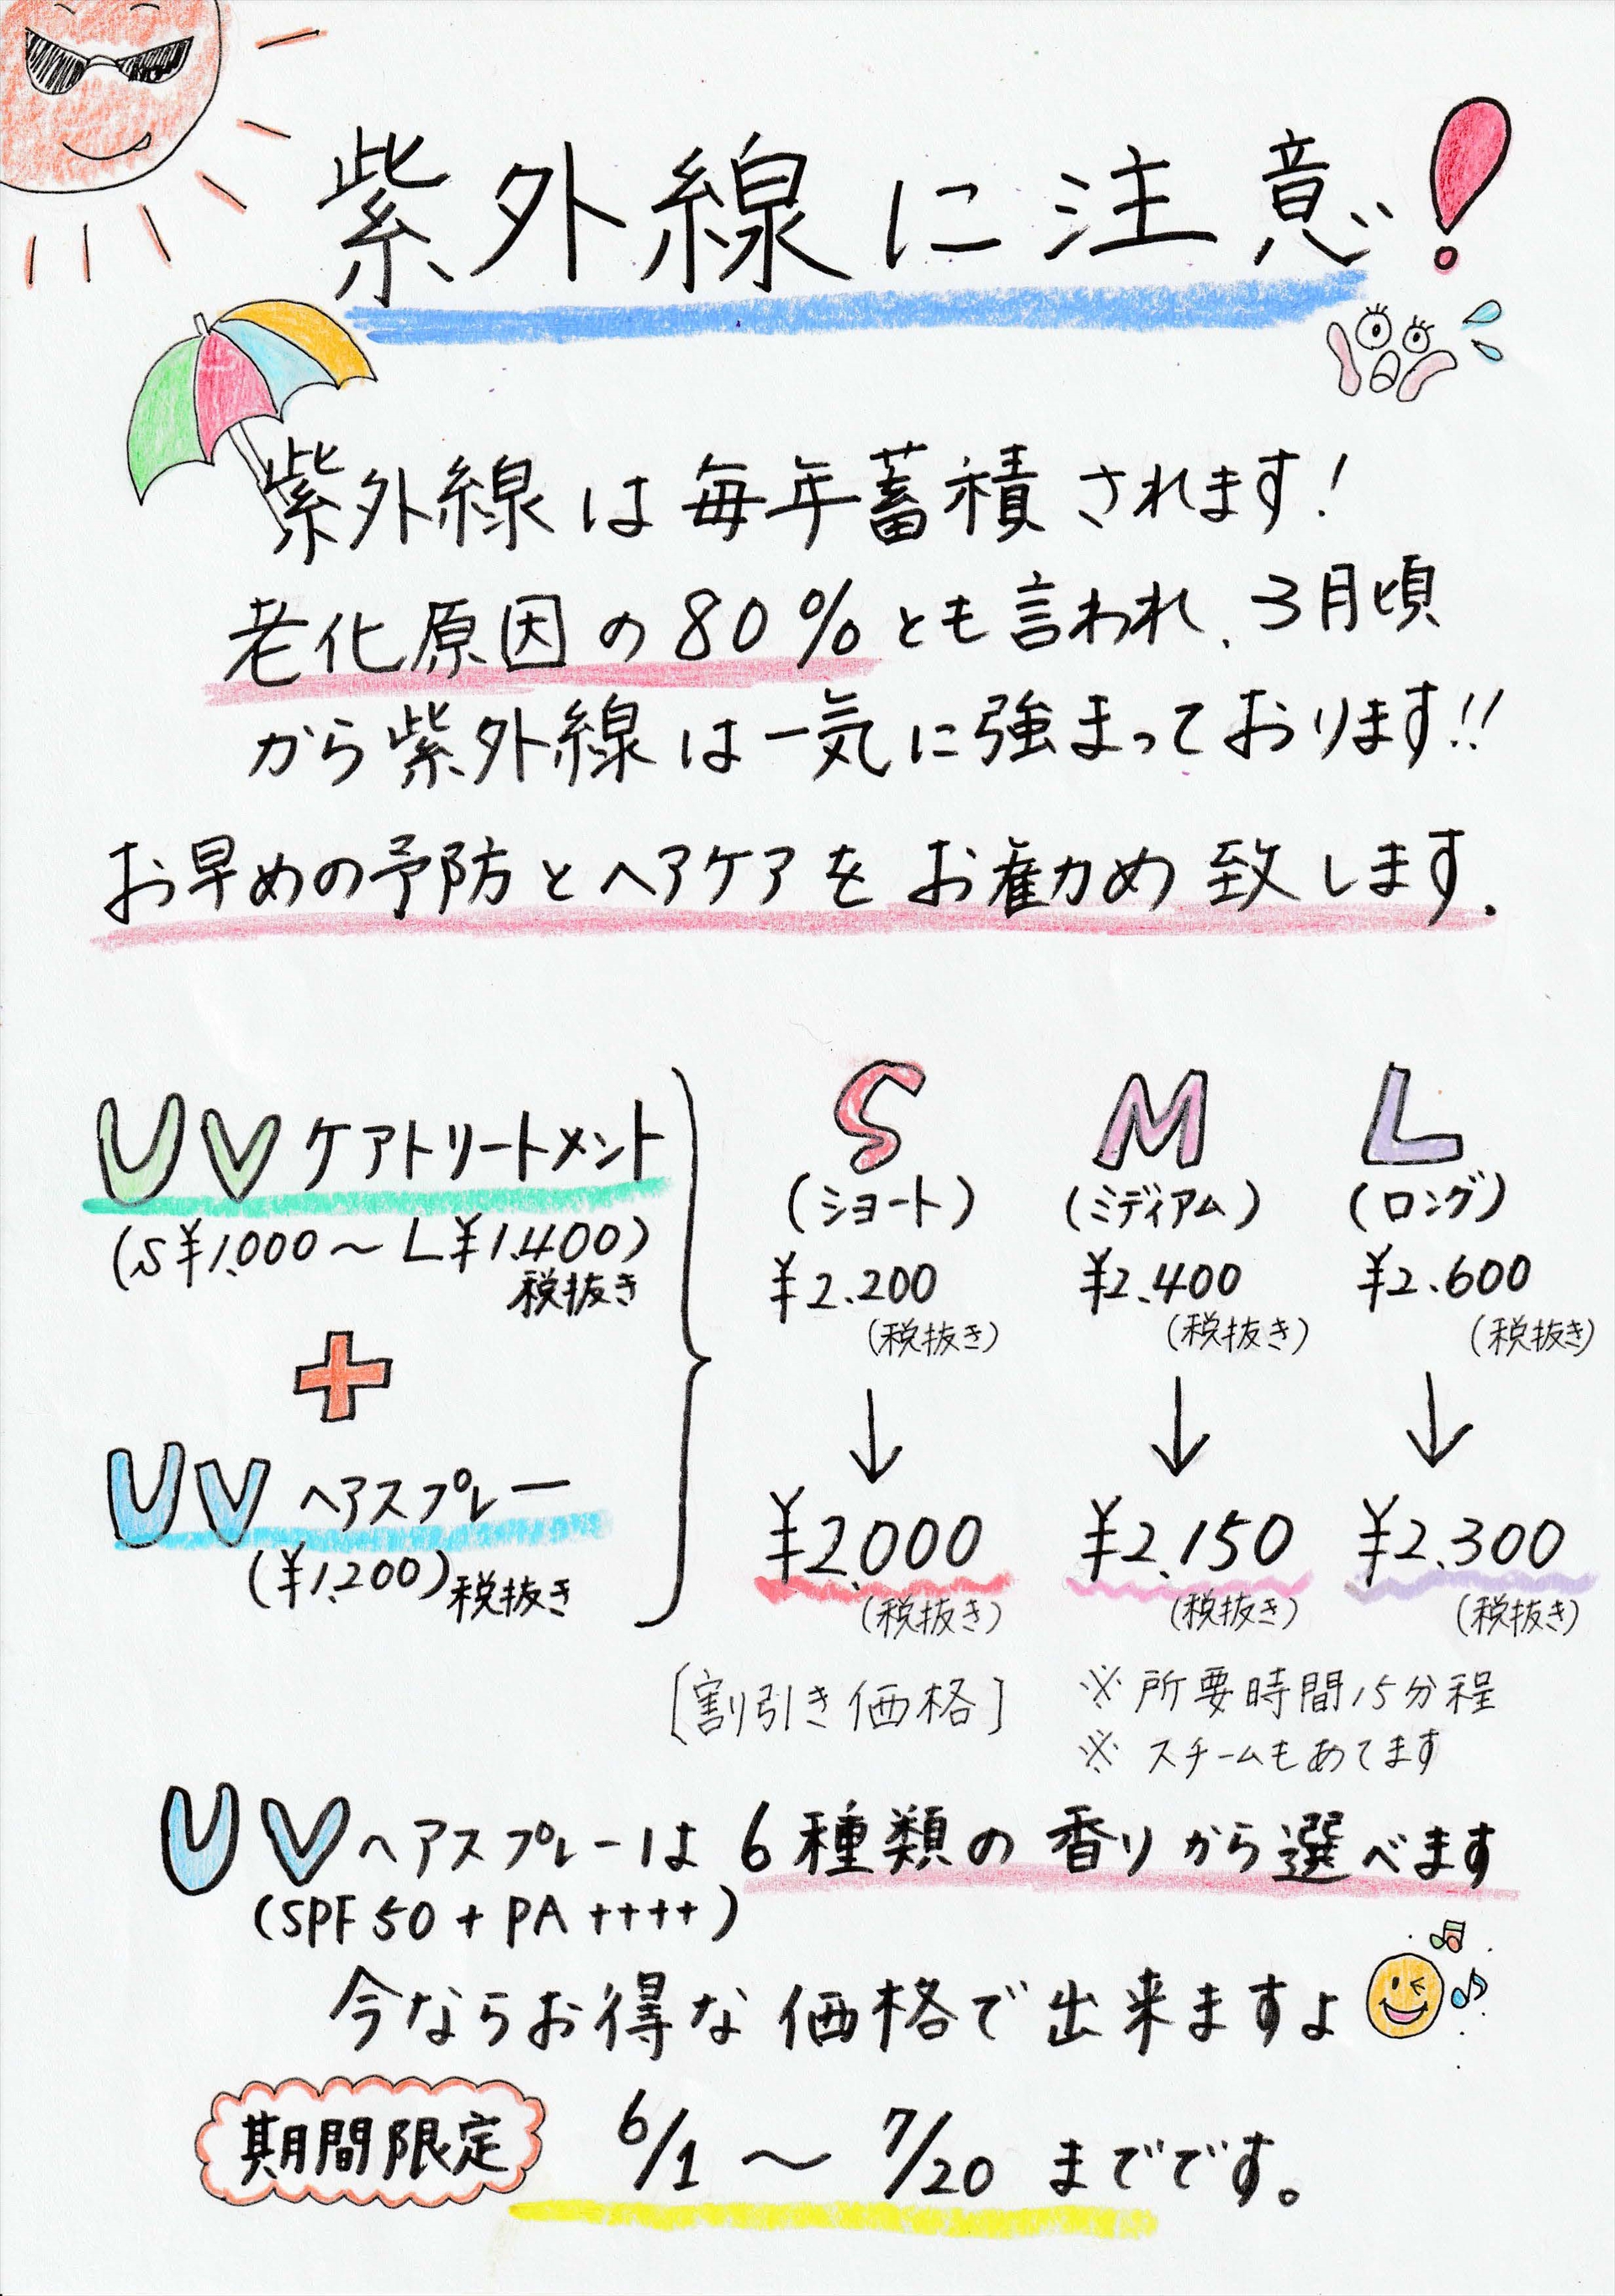 紫外線に注意!
紫外線は毎年蓄積されます!
老化原因の80%とも言われ、3月頃
から紫外線は一気に強まっております!!
お早めの予防とヘアケアをお勧め致します.
UVケアトリートメント
(S¥1.000～L¥1.400)
税抜き
+
UVヘアスプレー
(¥1.200)税抜き
S M L
(ショート) (ミディアム) (ロング)
¥2.200 ¥2.400 ¥2.600
(税抜き) (税抜き) (税抜き)
↓ ↓ ↓
¥2.000 ¥2.150 ¥2.300
(税抜き) (税抜き) (税抜き)
[割引き価格] ※所要時間15分程
※スチームもあてます
UVヘアスプレーは6種類の香りから選べます
(SPF50+PA++++)
今ならお得な価格で出来ますよ
期間限定 6/1～7/20までです。